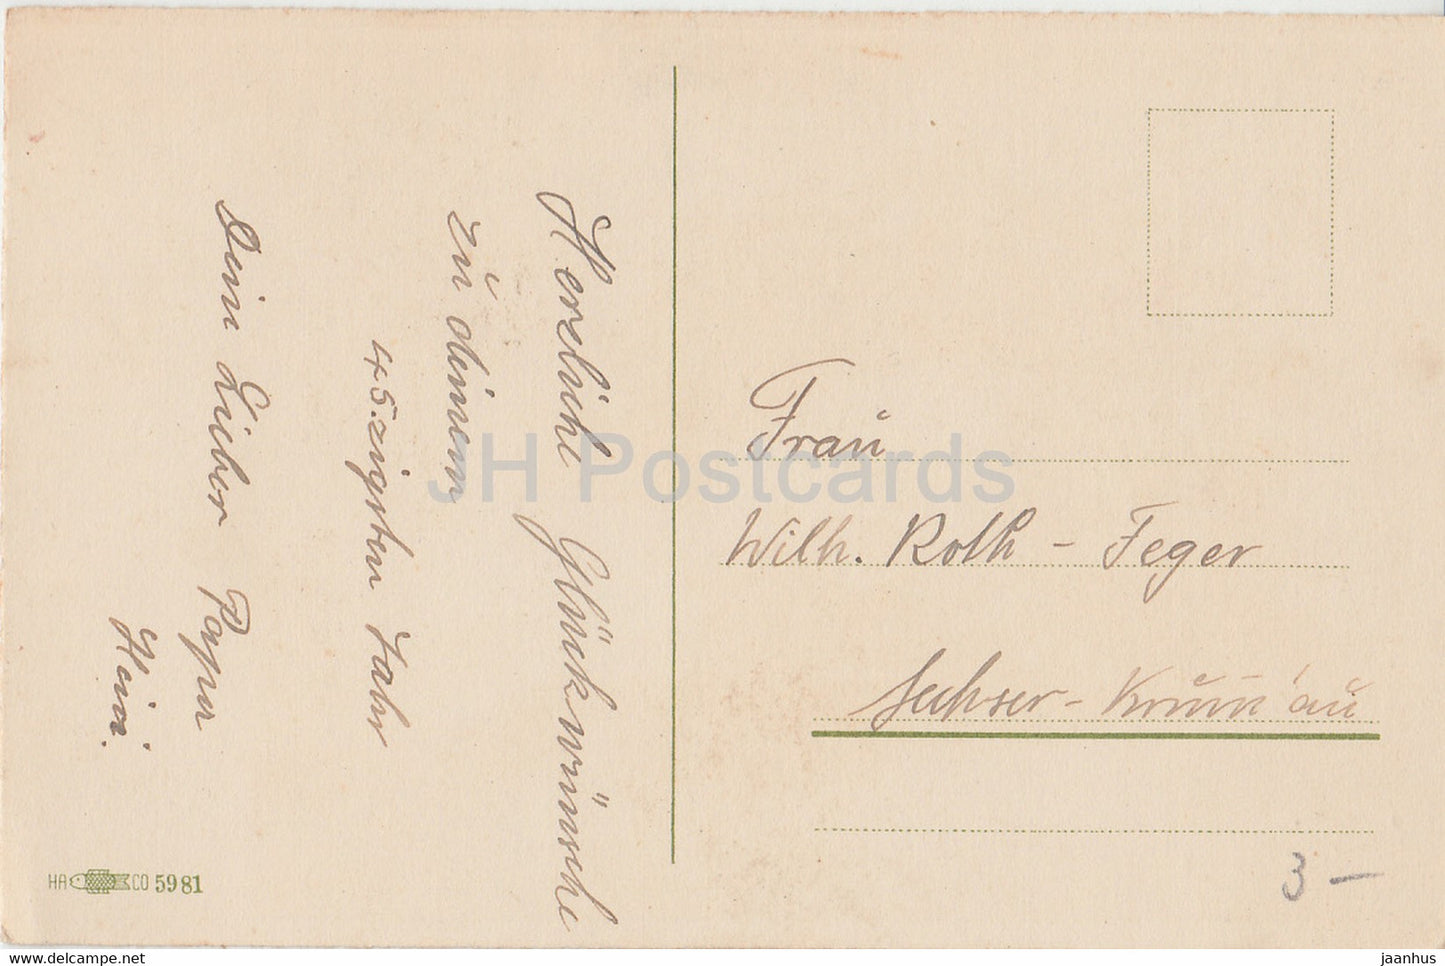 Herzliche Glückwünsche
zu deinem
45.zigsten Jahr
Dein Lieber Papa
Heini.
Frau
Wilh. Roth - Feger
3 —
HACO 5981
JH Postcards
www.delcampe.net
jaanhus